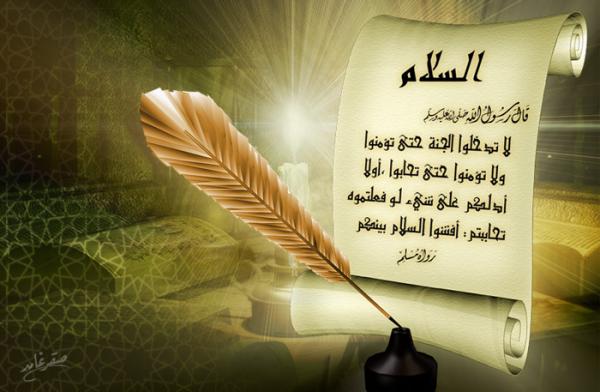 السلام
قال رسول الله صلى الله عليه وسلم
لا تدخلوا الجنة حتى تؤمنوا
ولا تؤمنوا حتى تحابوا ,أولا
أدلكم على شيء لو فعلتموه
تحاببتم: أفشوا السلام بينكم
رواه مسلم
صقر غامد